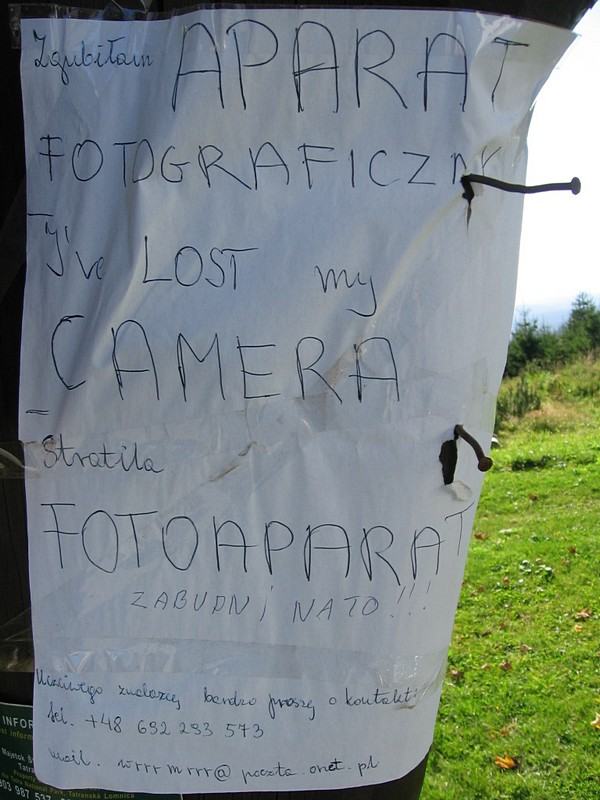 Zgubiłam APARAT
FOTOGRAFICZNY
I've LOST my
CAMERA
Stratila
FOTOAPARAT
ZABUDNI NATO!!!
Uczciwego znalazcę bardzo proszę o kontakt:
tel. +48 692 293 573
mail. wrrrmrrr@poczta.onet.pl
INFOR
Majetok
Tatra
Park, Tatranská Lomnica
903 987 537